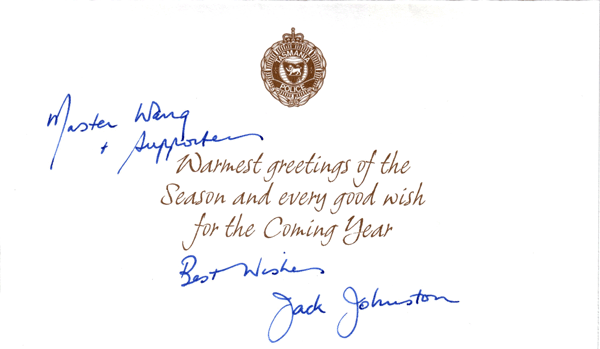 TASMANIA
POLICE
Master Wang
+ Supporters
Warmest greetings of the
Season and every good wish
for the Coming Year
Best Wishes
Jack Johnston